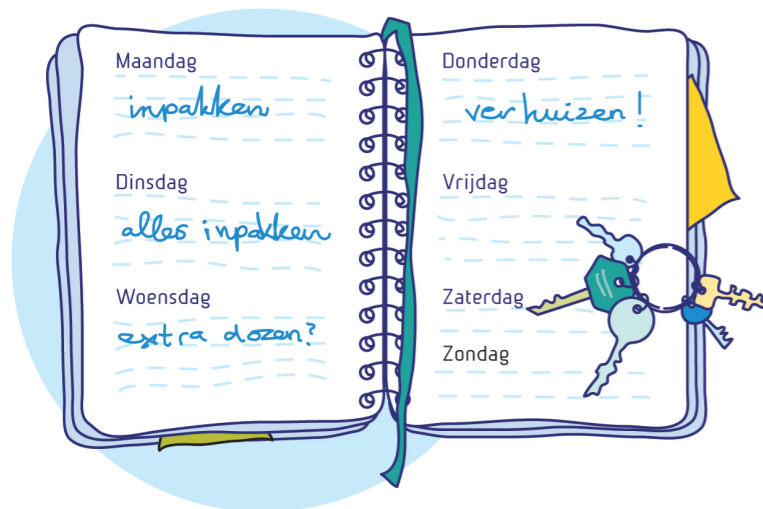 Maandag
inpakken
Dinsdag
alles inpakken
Woensdag
extra dozen?
Donderdag
verhuizen!
Vrijdag
Zaterdag
Zondag